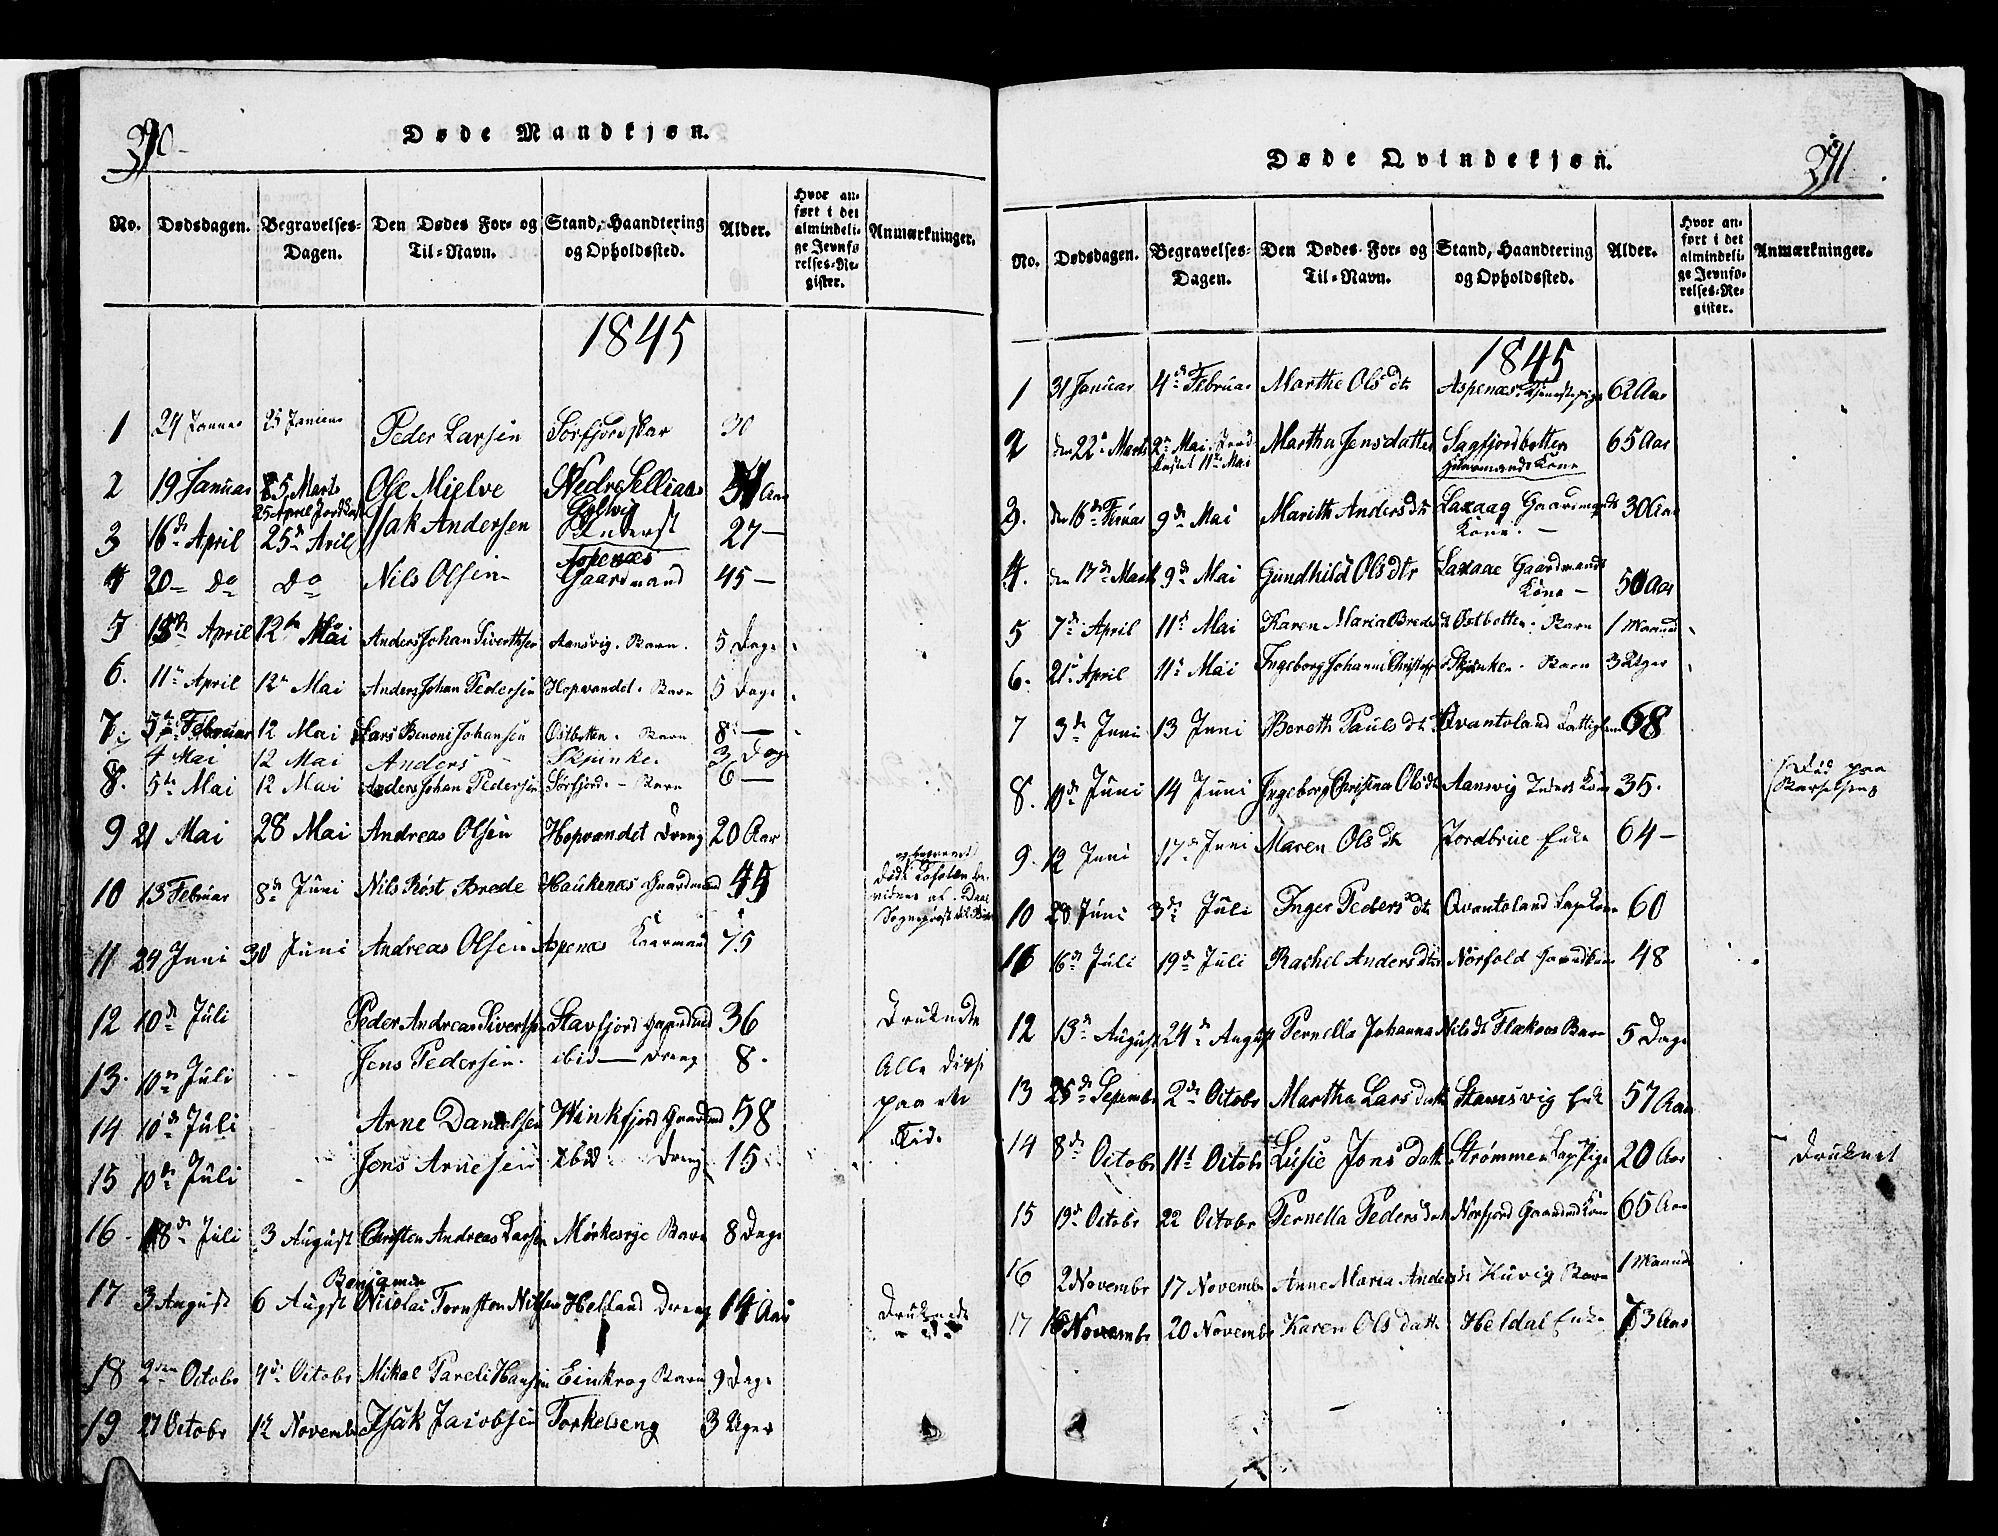 Døde Mandkjøn.
No. Dødsdagen. Begravelses-Dagen. Den Dødes For- og Til-Navn. Stand, Haandtering og Opholdssted. Alder. Hvor anført i det almindelige Jevnførelses-Register. Anmærkninger.
1845
1 24 Januar 25 Peder Larsen Sørfjordskar 30
2 19 Januar 5 Marts Ole Mielve Nedre Aar
25 April
3 16de April 25de April Isak Andersen Inderst 27 —
4 20 — Do Do Nils Olsen Aspenæs Gaardmand 45 —
5 April 12te Mai Anders Johan Siverthsen Aansvig. Barn. 5 Dage
6. 11te April 12te Mai Anders Johan Pedersen Hopvandet. Barn 5 Dage
7. 5te Februar 12 Mai Lars Benoni Johansen Østbotten. Barn 8 —
4 Mai 12 Mai Anders — Skjunke. 3 Dag
8. 5te Mai 12 Mai Anders Johan Pedersen Sørfjord. — Barn 6 —
9 21 Mai 28 Mai Andreas Olsen Hopvandet Dreng 20 Aar
10 13 Februar 8de Juni Nils Røst Brede Haukenæs Gaardmand 44
11 24 Juni 30 Juni Andreas Olsen Aspenæs 75
12 10de Juli Peder Andreas Sivertsen Stavfjord Gaardmd 36 Druknede
13. 10de Juli Jens Pedersen. ibid — Dreng 8. Alle disse
14 10de Juli Arne Danielsen Winkfjord Gaardmd 58 paa en
15 10de Juli Jens Arnesen ibid Dreng 15 Tid.
16 18de Juli 3 August Christen Andreas Larsen Mørkesvje Barn 8 Dage
17 3 August 6 Augst Benjamin Nicolai Tornsten Nilsen Helland Dreng 14 Aar Druknede
18 2den Octobr 4de Octobr Mikal Pareli Hansen Einkrog Barn 9 Dage
19 27 Octobr 12 Novembr Isak Jacobsen Torkelseng 3 Uger
Døde Qvindekjøn.
No. Dødsdagen. Begravelses-Dagen. Den Dødes For- og Til-Navn. Stand, Haandtering og Opholdssted. Alder. Hvor anført i det almindelige Jevnførelses-Register. Anmærkninger.
1845
1 31 Januar 4de Februar Marthe Olsdtr Aspenæs. Tjenestepige 62 Aar
2 den 22de Marts 2de Mai Martha Jensdatter Sagfjordbotten 65 Aar
11te Mai Gaardmands Kone
3. den 16de 9de Mai Marith Andersdtr Laxaag Gaardmands Kone. — 30 Aar
4. den 17de Marts 9de Mai Gundhild Olsdtr Laxaae Gaardmands Kone — 50 Aar
5 7de April 11te Mai Karen Maria Bredesdt Østbotten. Barn 1 Maaned
6. 21de April 11te Mai Ingeborg Johanne Skjunken. Barn 3 Uger
7 3de Juni 13 Juni Bereth Paulsdtr Qvantoland 68
8. 10de Juni 14 Juni Ingeborg Christina Olsdtr Aansvig Inderst Kone 35. Død paa Barselseng
9. 12 Juni 17de Juni Maren Olsdtr Jordbrue Enke 64 —
10 28 Juni 3de Juli Inger Pedersdtr Qvantoland Lapkone 60
11 16de Juli 19de Juli Rachel Andersdtr Nørfold 48
12 13de August 24de August Pernella Johanna Nilsdt Flækнæs Barn 5 Dage
13 28de Septembr 2de Octobr Martha Larsdatt Stamsvig Enke 57 Aar
14 8de Octobr 11te Octobr Lusie Jonsdatt Strømmen Lap Pige 20 Aar Druknet
15 19de Octobr 22 Octobr Pernella Pedersdatt Nørfjord Gaardmd Kone 65 Aar
16 2 Novembr 17 Novembr Anne Maria Andersdt Kuvig Barn 1 Maaned
17 16 Novembr 20 Novembr Karen Olsdatt Heldal Enke 73 Aar